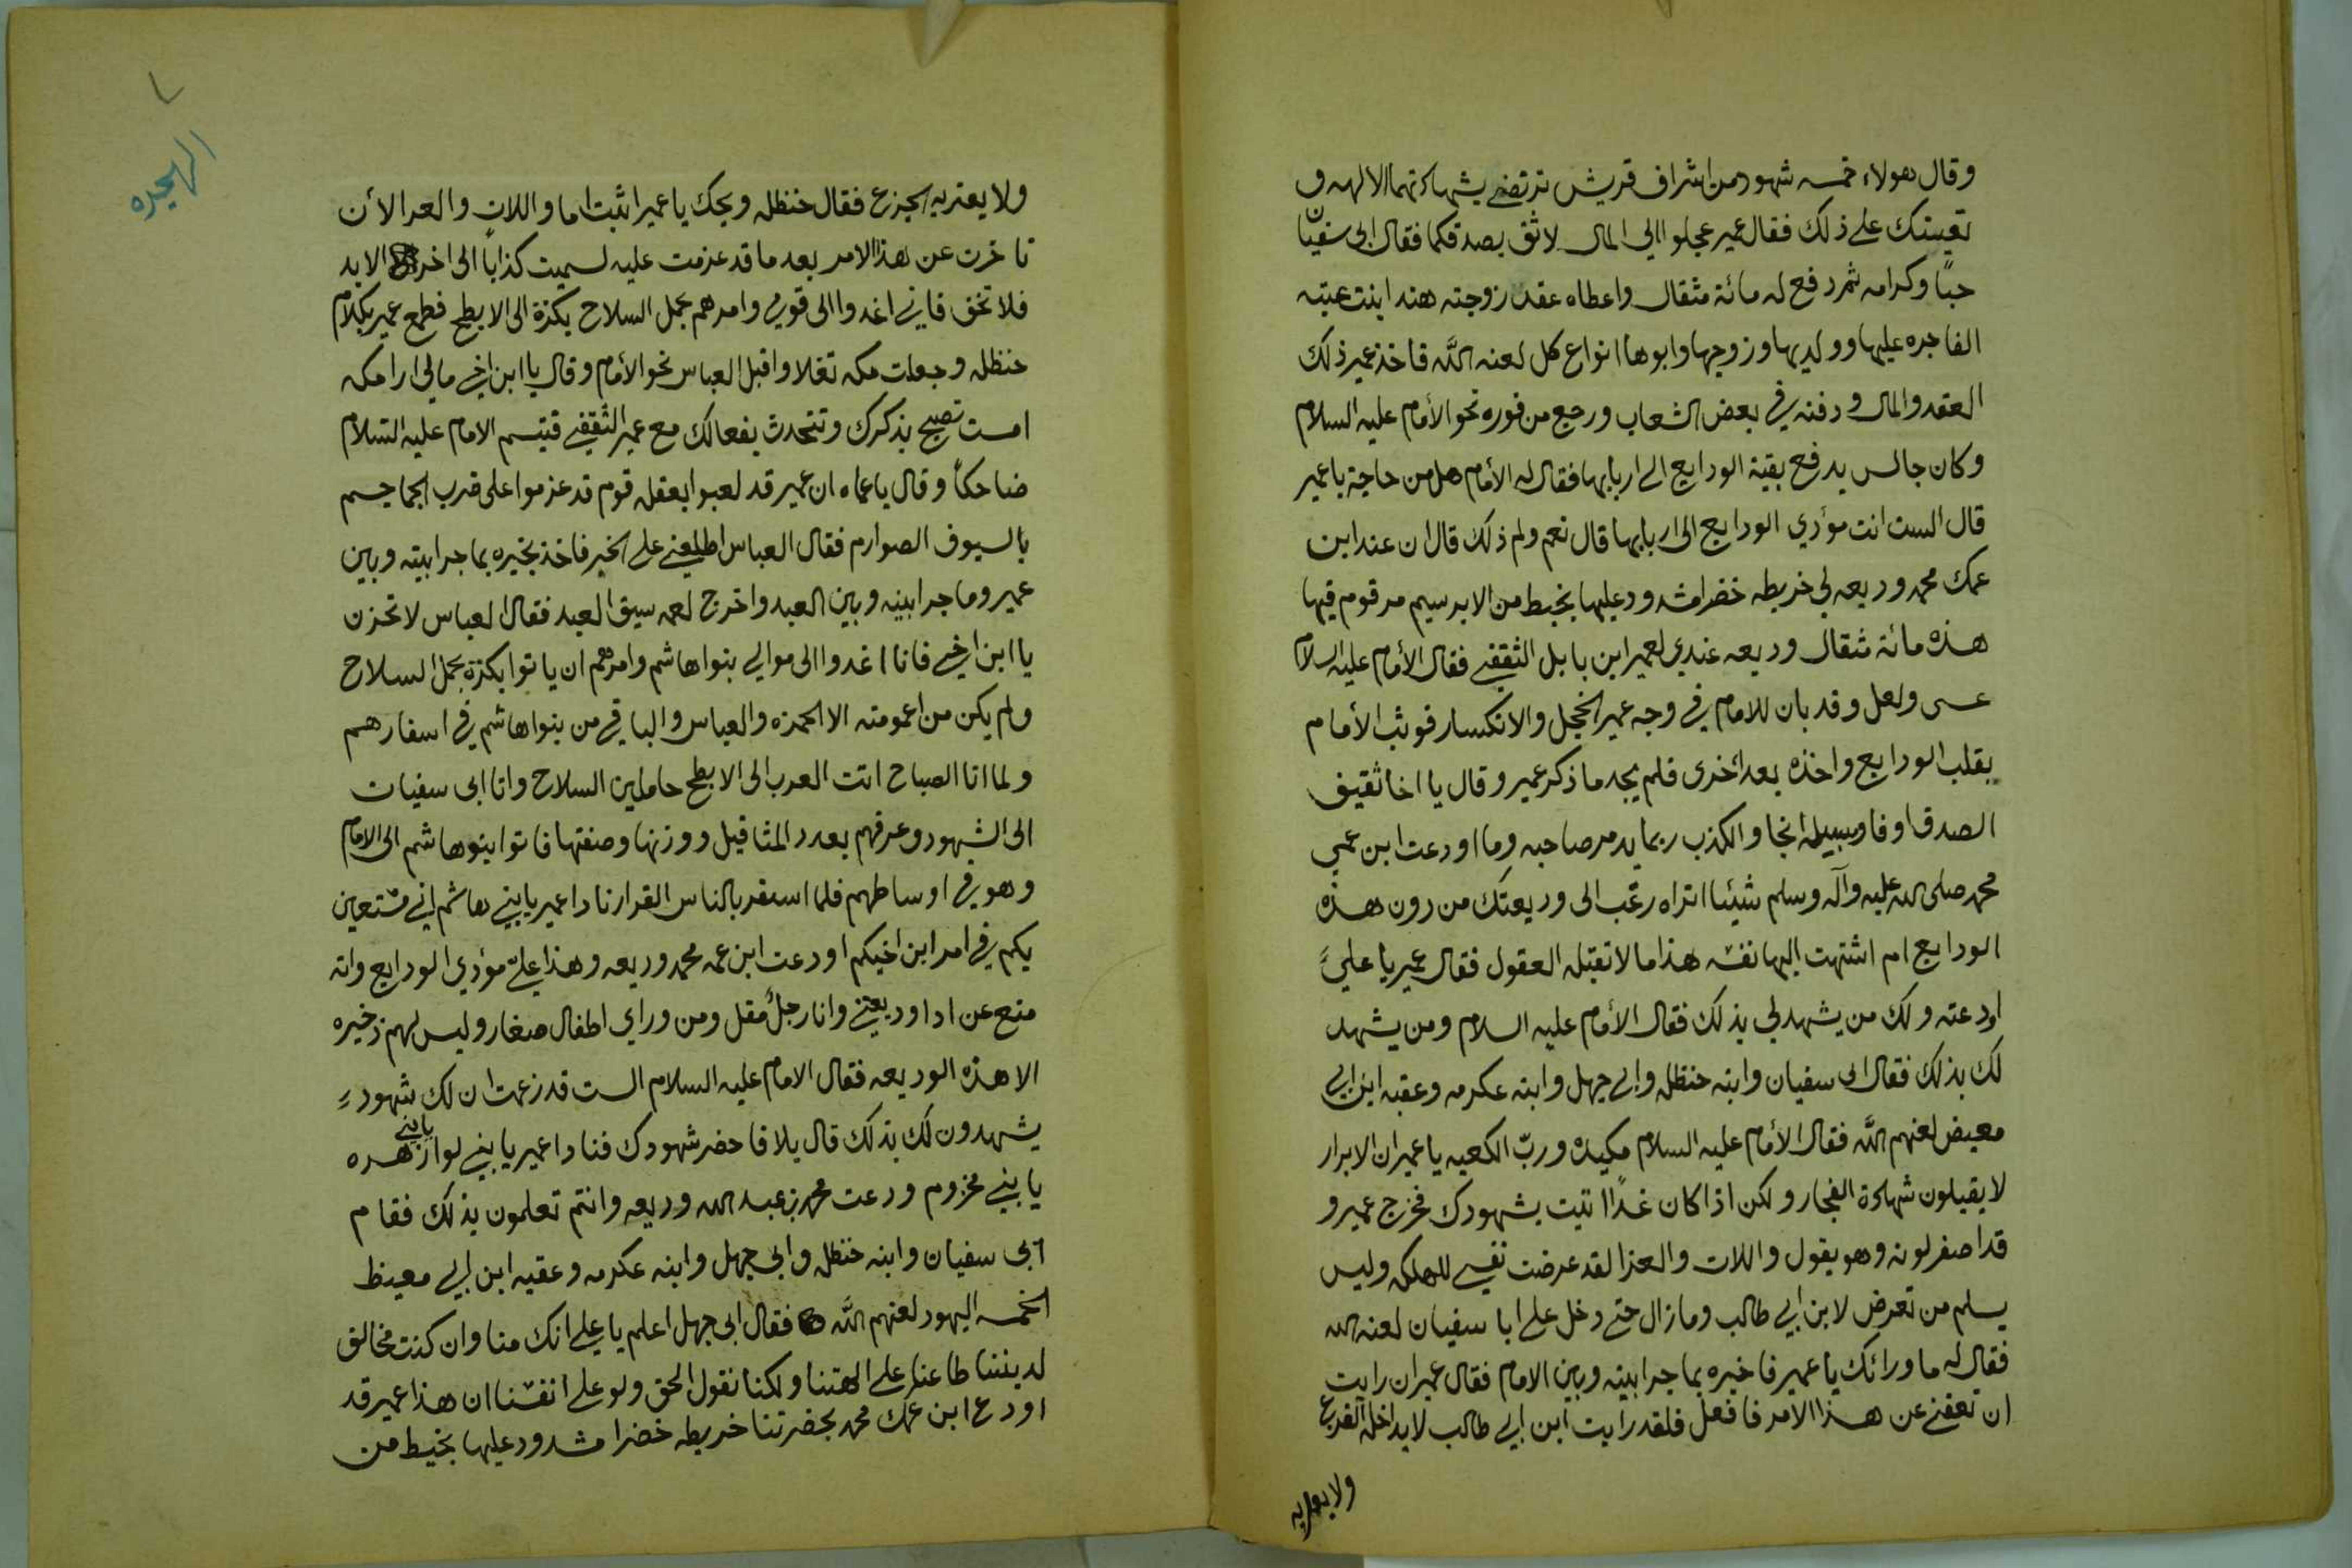 وقال هولاء خمسه شهود من اشراف قريش ترتضي بشهادتهما الالهه و
تعينك على ذلك فقال عمير عجلوا الي المال لاثق بصدقكما فقال ابى سفيان
حبًا وكرامه ثم دفع له مائة مثقال واعطاه عقد زوجته هند ابنت عتبه
الفاجره عليها وولديها وزوجها وابوها انواع كل لعنه الله فاخذ عمير ذلك
العقد والمال ودفنه في بعض الشعاب ورجع من فوره نحو الأمام عليه السلام
وكان جالس يدفع بقية الودايع الى اربابها فقال له الأمام هل من حاجة يا عمير
قال الست انت مؤدي الودايع الى اربابها قال نعم ولم ذلك قال ان عند ابن
عمك محمد وديعه لي خريطه خضرا مشدود عليها بخيط من الابرسيم مرقوم فيها
هذه مائة مثقال وديعه عندي لعمير ابن بابل الثقفي فقال الأمام عليه السلام
عسى ولعل وقد بان للامام في وجه عمير الخجل والانكسار فوثب الأمام
يقلب الودايع واخذه بعد اخرى فلم يجد ما ذكر عمير وقال يا اخا ثقيف
الصدق اوفا وسبيله انجا والكذب ربما يدمر صاحبه وما اودعت ابن عمي
محمد صلى الله عليه وآله وسلم شيئا اتراه رغب الى وديعتك من دون هذه
الودايع ام اشتهت اليها نفسه هذا ما لا تقبله العقول فقال عمير يا علي
اودعته ولك من يشهد لي بذلك فقال الأمام عليه السلام ومن يشهد
لك بذلك فقال ابى سفيان وابنه حنظله وابي جهل وابنه عكرمه وعقبه ابن ابي
معيض لعنهم الله فقال الأمام عليه السلام مكيدة وربّ الكعبه يا عمير ان الابرار
لا يقبلون شهادة الفجار ولكن اذا كان غدًا اتيت بشهودك فخرج عمير و
قد اصفر لونه وهو يقول واللات والعزا لقد عرضت نفسي للهلكه وليس
يسلم من تعرض لابن ابي طالب وما زال حتى دخل على ابا سفيان لعنه الله
فقال له ما ورائك يا عمير فاخبره بما جرا بينه وبين الامام فقال عمير ان رايت
ان تعفني عن هذا الامر فافعل فلقد رايت ابن ابي طالب لا يداخله الفزع
ولا يعتريه
٧
الهجيره
ولا يعتريه الجزع فقال حنظله ويحك يا عمير اثبت اما واللات والعزا لأن
تاخرت عن هذا الامر بعد ما قد عزمت عليه لسميت كذابًا الى اخر الابد
فلا تخف فاني اغدوا الى قومي وامرهم بحمل السلاح بكرة الى الابطح فطمع عمير بكلام
حنظله وجعلت مكه تغلا واقبل العباس نحو الأمام وقال يا ابن اخي مالي ارا مكه
امست تصيح بذكرك وتتحدث بفعالك مع عمير الثقفي فتبسم الامام عليه السلام
ضاحكاً وقال يا عماه ان عمير قد لعبوا بعقله قوم قد عزموا على ضرب الجماجم
بالسيوف الصوارم فقال العباس اطلعني على الخبر فاخذ يخبره بما جرا بينه وبين
عمير وما جرا بينه وبين العبد واخرج لعمه سيف العبد فقال العباس لا تحزن
يا ابن اخي فانا اغدوا الى موالي بنوا هاشم وامرهم ان ياتوا بكرة بحمل السلاح
ولم يكن من اعمومته الا الحمزه والعباس والباقي من بنوا هاشم في اسفارهم
ولما اتا الصباح اتت العرب الى الابطح حاملين السلاح واتا ابى سفيان
الى الشهود وعرفهم بعدد المثاقيل ووزنها وصفتها فاتوا بنو هاشم الى الامام
وهو في اوساطهم فلما استقر بالناس القرار نادا عمير يا بني هاشم اني مستعين
بكم في امر ابن اخيكم اودعت ابن عمه محمد وديعه وهذا علي مؤدي الودايع وانه
متع عن ادا وديعتي وانا رجلٌ مقل ومن وراي اطفال صغار وليس لهم ذخيره
الا هذه الوديعه فقال الامام عليه السلام الست قد زعمت ان لك شهود
يشهدون لك بذلك قال بلا قا حضر شهودك فنادا عمير يا بني لواز يا بني زهره
يا بني مخزوم ودعت محمد بن عبد الله وديعه وانتم تعلمون بذلك فقام
ابى سفيان وابنه حنظله وابي جهل وابنه عكرمه وعقبه ابن ابي معيظ
الخمسه اليهود لعنهم الله فقال ابى جهل اعلم يا علي انك منا وان كنت مخالف
لديننا طاعنا على الهتنا ولكنا نقول الحق ولو على انفسنا ان هذا عمير قد
اودع ابن عمك محمد بحضرتنا خريطه خضرا مشدود عليها بخيط من